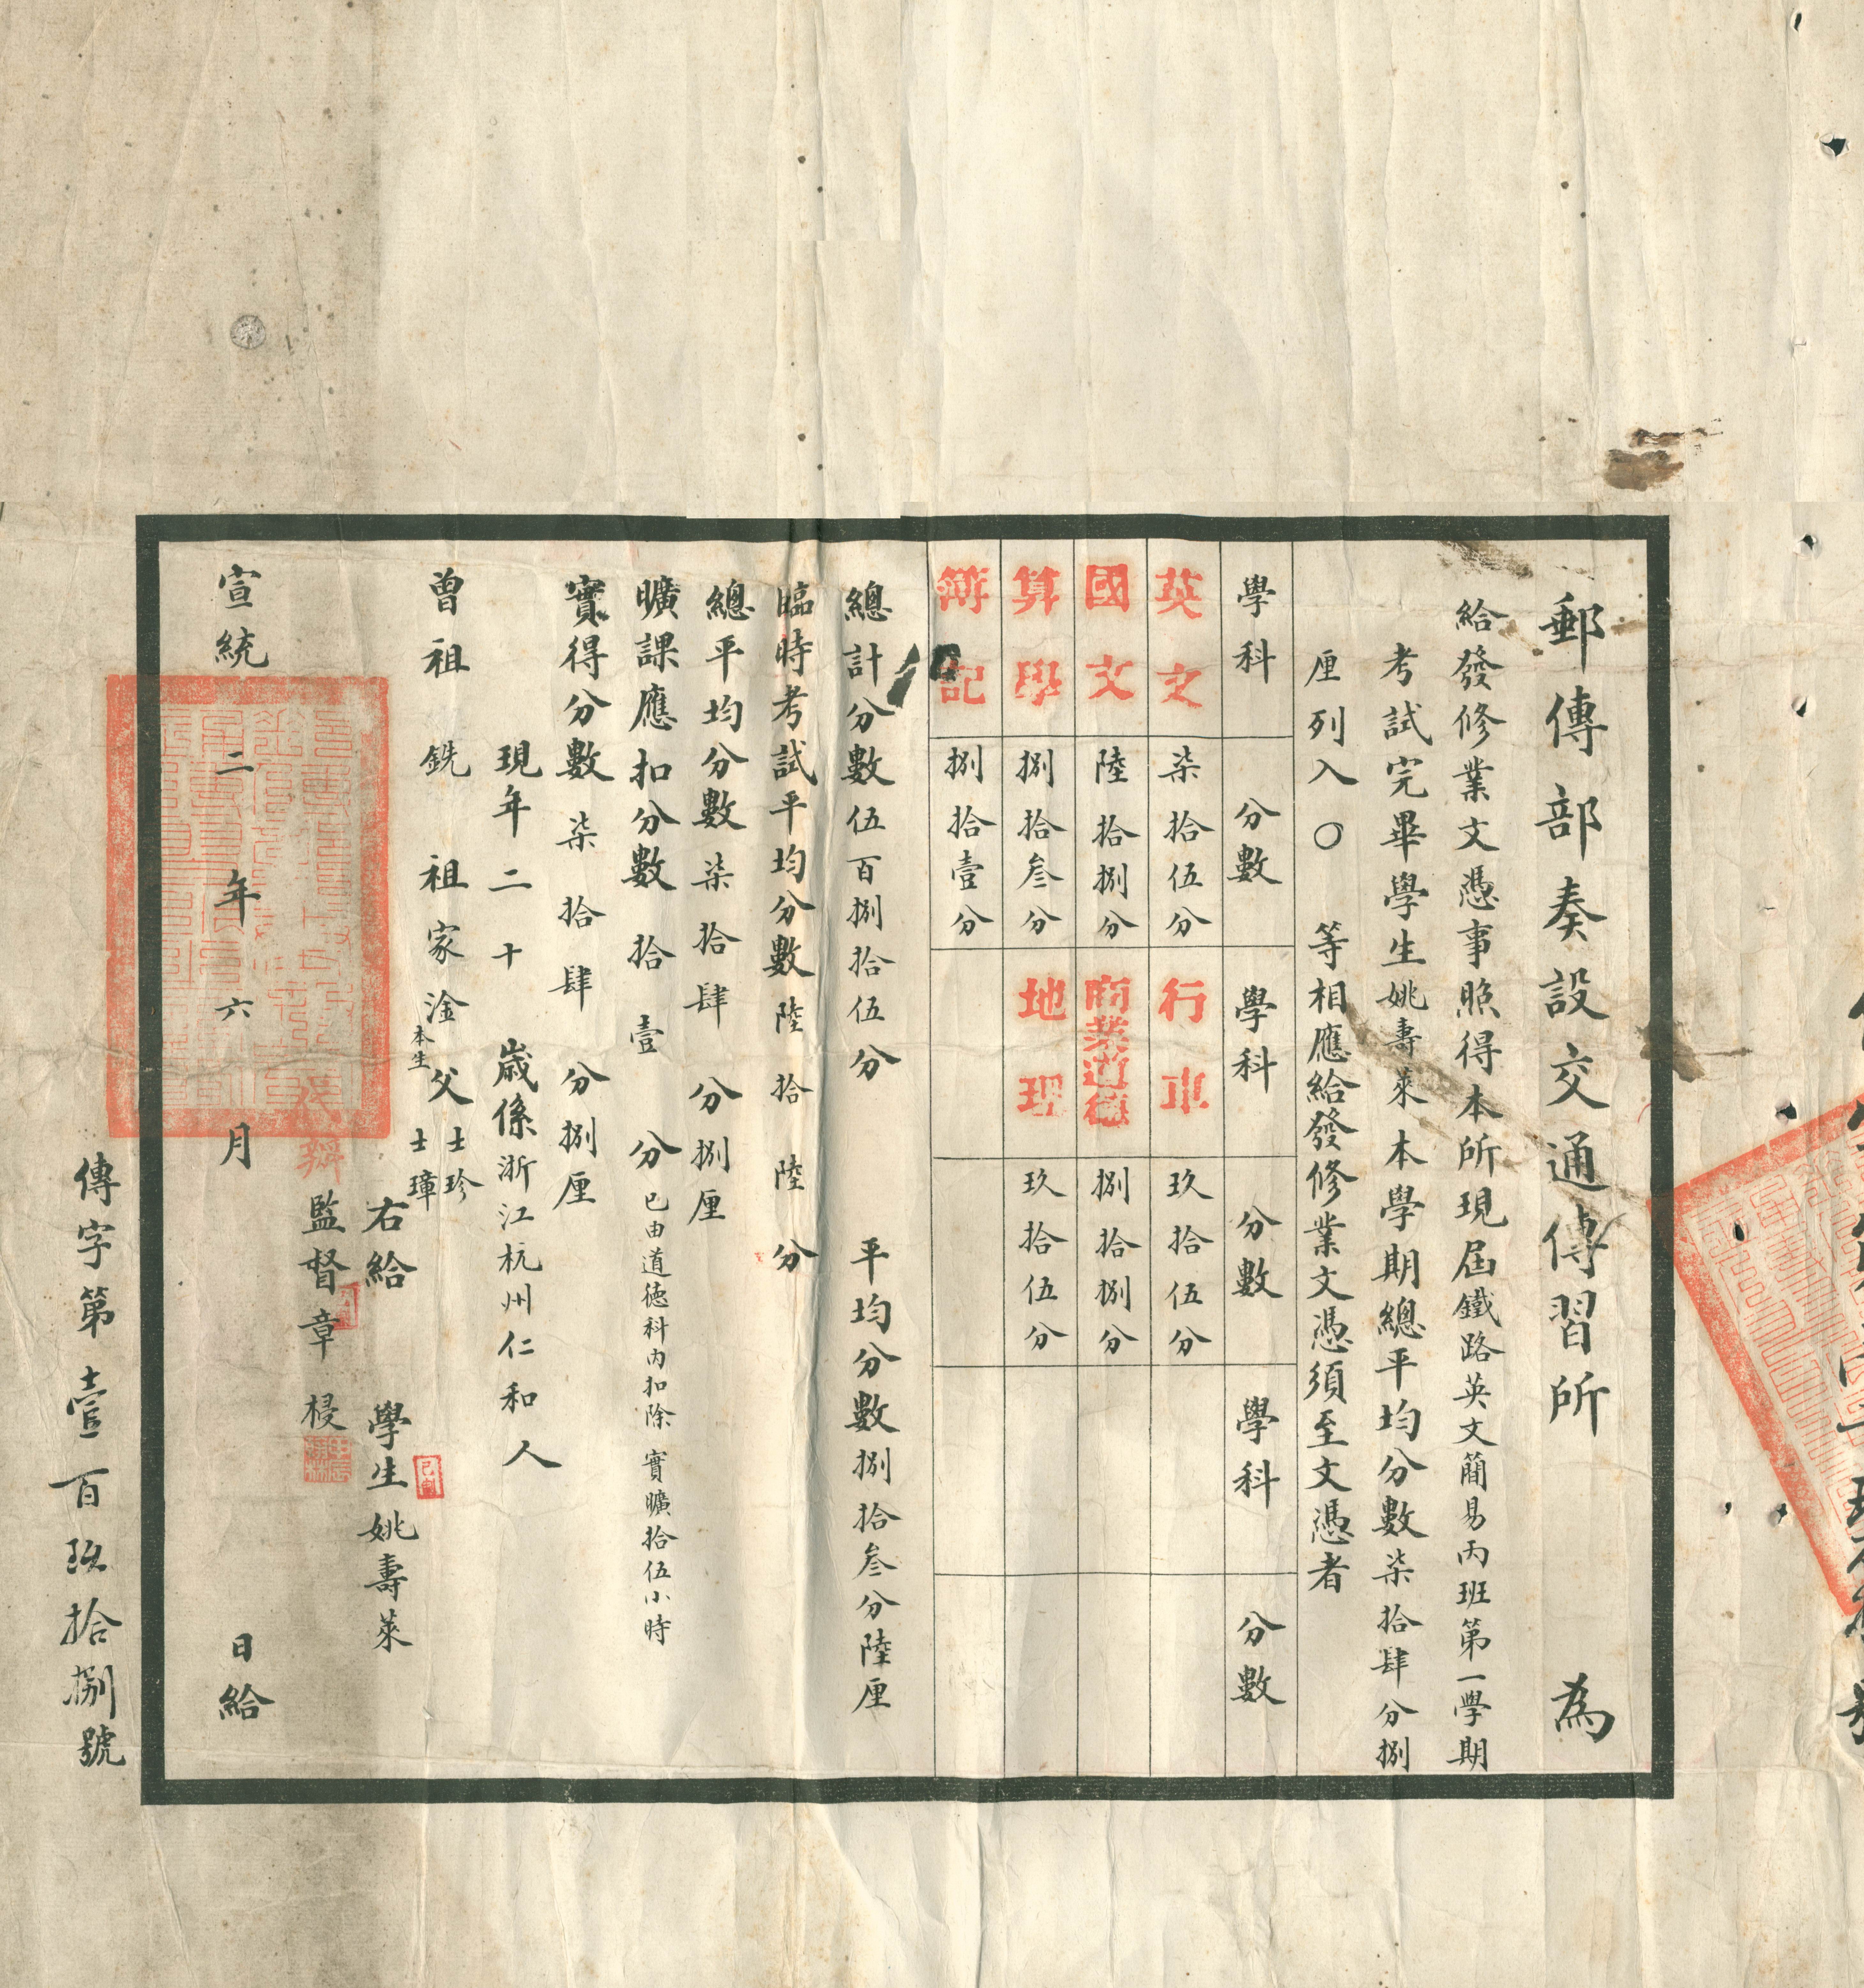 郵傳部奏設交通傳習所 為
給發修業文憑事照得本所現屆鐵路英文簡易丙班第一學期
考試完畢學生姚壽萊本學期總平均分數柒拾肆分捌
厘列入〇 等相應給發修業文憑須至文憑者
學科 分數 學科 分數 學科 分數
英文 柒拾伍分 行車 玖拾伍分
國文 陸拾捌分 商業道德 捌拾捌分
算學 捌拾叄分 地理 玖拾伍分
簿記 捌拾壹分
總計分數伍百捌拾伍分 平均分數捌拾叄分陸厘
臨時考試平均分數陸拾陸分
總平均分數柒拾肆分捌厘
曠課應扣分數拾壹分 已由道德科內扣除 實曠拾伍小時
實得分數柒拾肆分捌厘
現年二十歲係浙江杭州仁和人
曾祖銑 祖家淦 父士珍 本生士璋
右給 學生姚壽萊
監督章梫
宣統二年六月 日給
傳字第壹百玖拾捌號